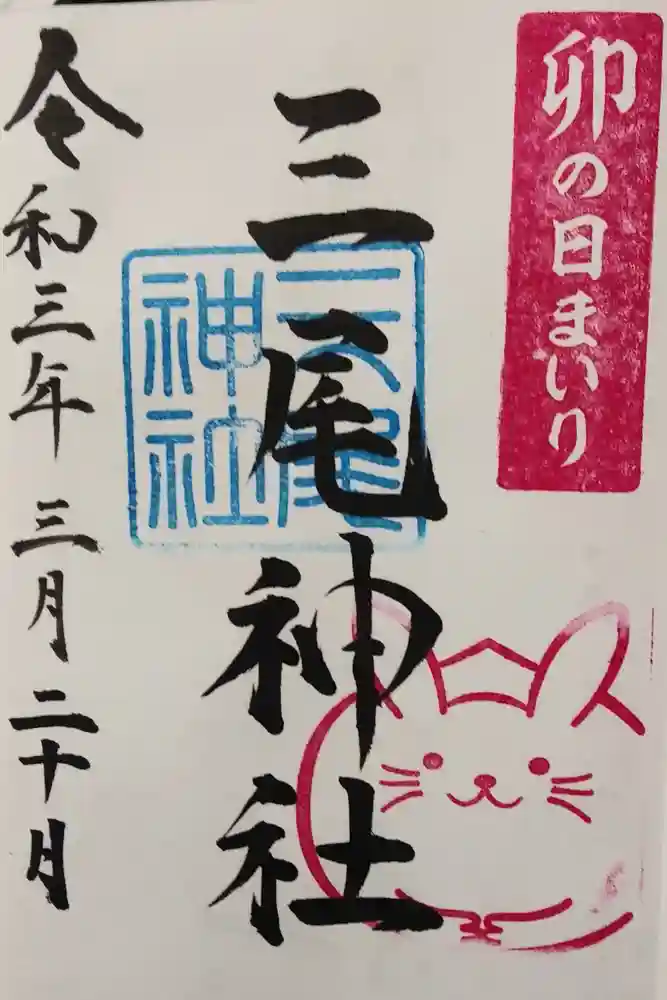 卯の日まいり
三尾神社
三尾
神社
令和三年三月二十月